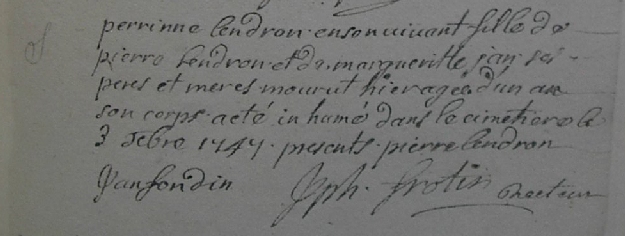 perrinne Lendron en son vivant fille de
pierre Lendron et de margueritte jan ses
peres et meres mourut hier agee d'un an
son corps a eté in humé dans le cimetiere le
3 7bre 1747 presents pierre Lendron
Jan fondin Jph. frotin Recteur